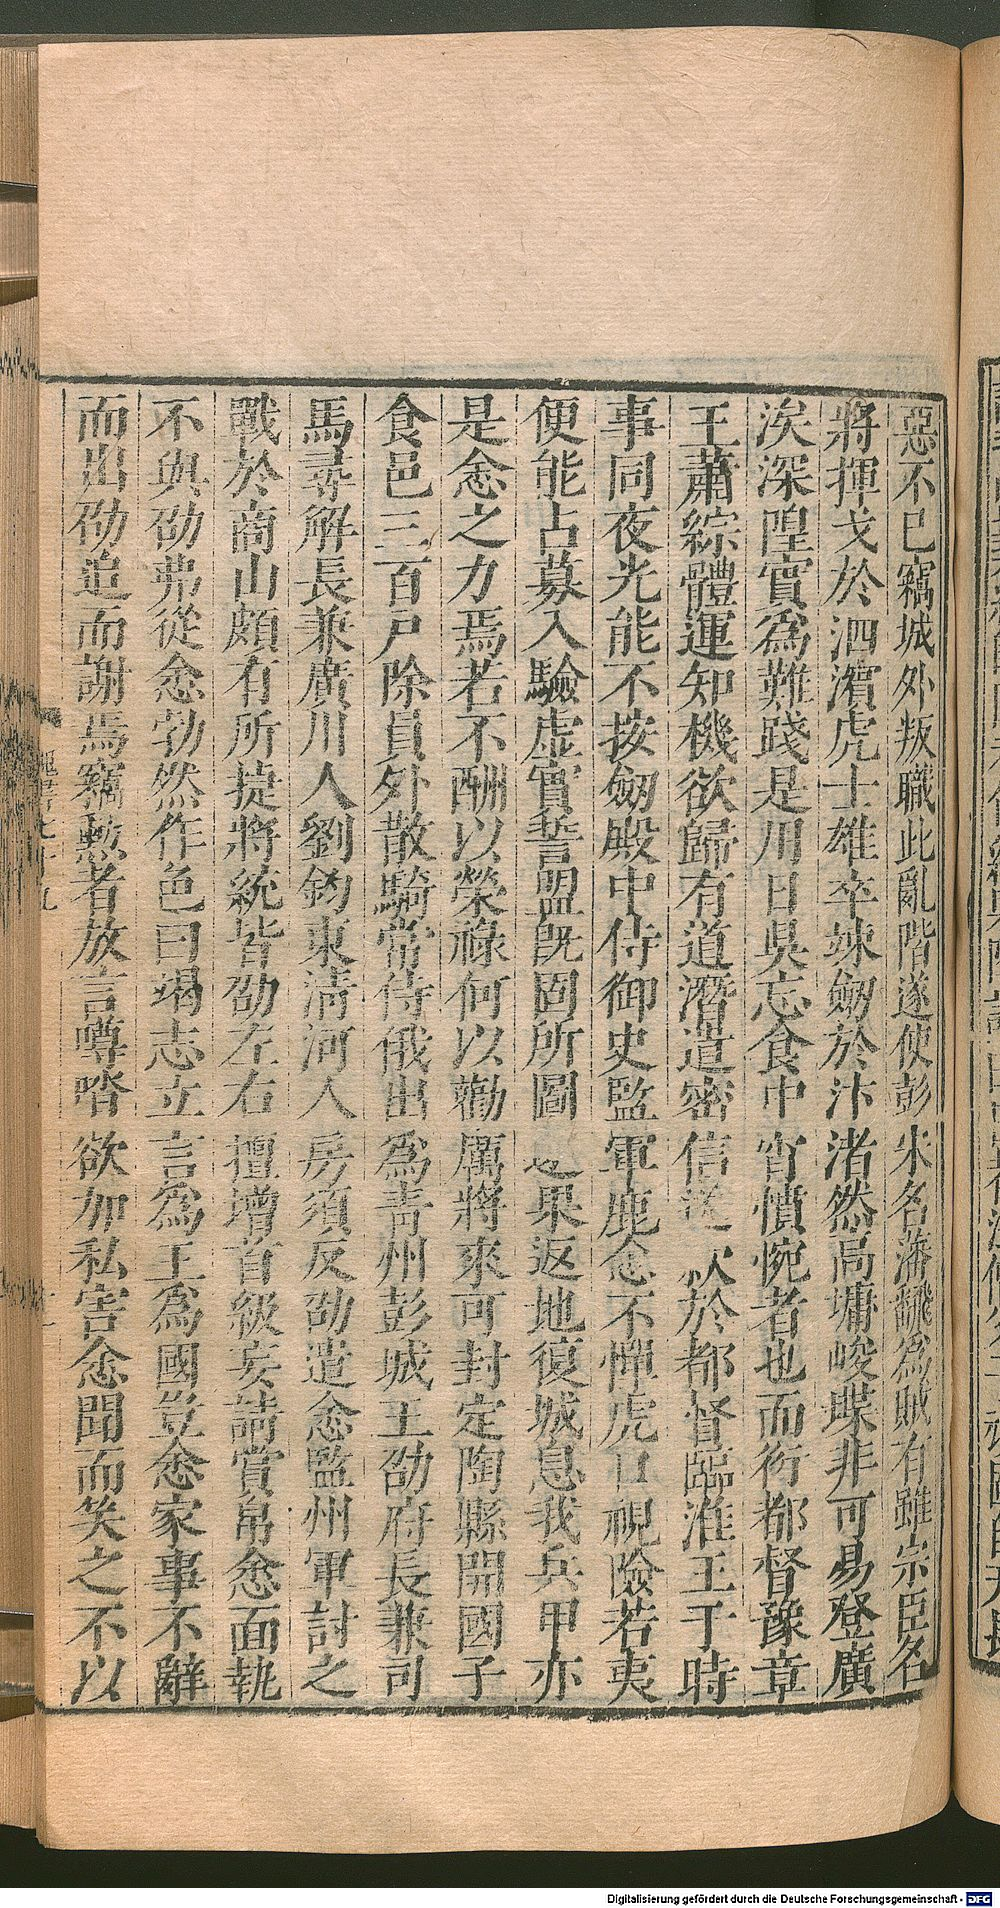 惡不已竊城外叛職此亂階遂使彭宋名藩翻為賊有雖宗臣名
將揮戈於泗濱虎士雄卒竦劒於汴渚然高墉峻堞非可易登廣
涘深隍實為難踐是川日昃忘食中宵憤惋者也而衍都督豫章
王蕭綜體運知機欲歸有道潛遣密信送欵於都督臨淮王于時
事同夜光能不按劒殿中侍御史監軍鹿悆不憚虎口視險若夷
便能占募入驗虛實誓盟旣固所圖之果返地復城息我兵甲亦
是悆之力焉若不酬以榮祿何以勸厲將來可封定陶縣開國子
食邑三百戶除員外散騎常侍俄出為靑州彭城王劭府長兼司
馬尋解長兼廣川人劉鈞東清河人房須反劭遣悆監州軍討之
戰於商山頗有所捷將統皆劭左右擅增首級妄請賞帛悆面執
不與劭弗從悆勃然作色曰竭志立言為王為國豈悆家事不辭
而出劭追而謝焉竊勲者放言噂𠴲欲加私害悆聞而笑之不以
魏書七十九
Digitalisierung gefördert durch die Deutsche Forschungsgemeinschaft - DFG